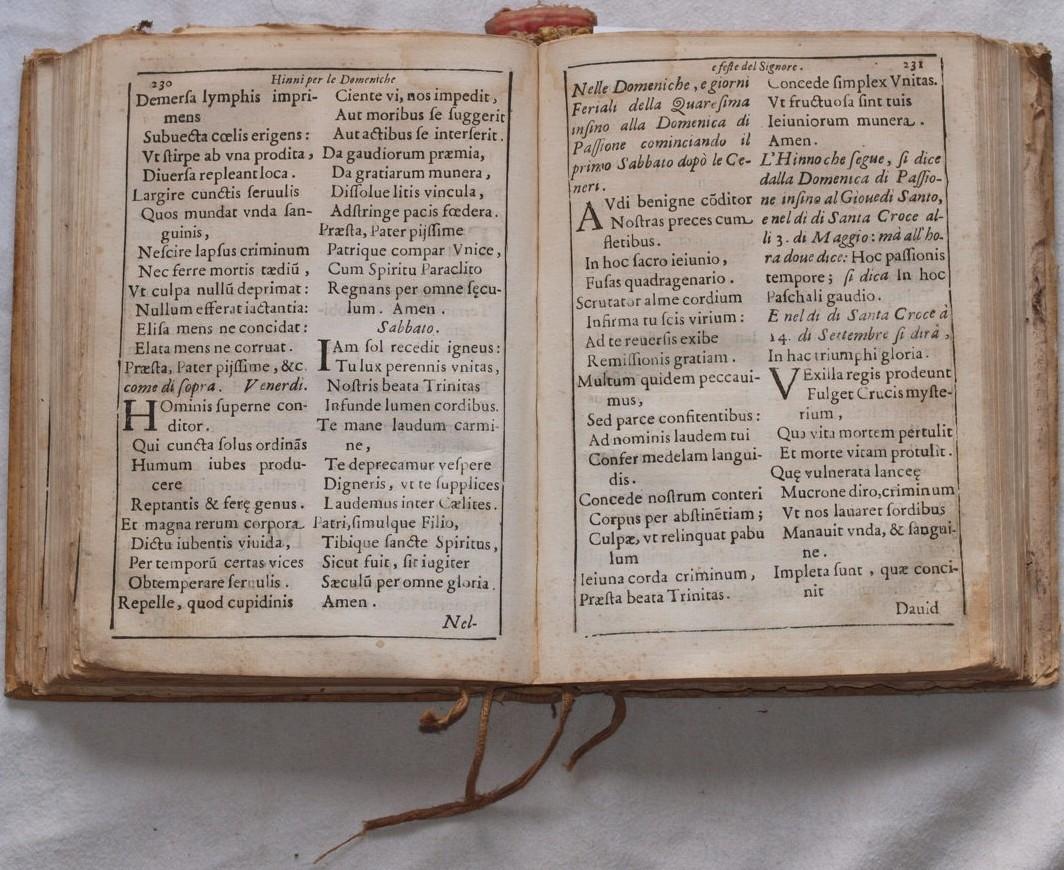 230
Hinni per le Domeniche
Demerſa lymphis impri-
mens
Subuecta cœlis erigens:
Vt ſtirpe ab vna prodita,
Diuerſa repleant loca.
Largire cunctis ſeruulis
Quos mundat vnda ſan-
guinis,
Neſcire lapſus criminum
Nec ferre mortis tædiũ,
Vt culpa nullũ deprimat:
Nullum efferat iactantia:
Eliſa mens ne concidat:
Elata mens ne corruat.
Præſta, Pater pijſſime, &c.
come di ſopra. Venerdì.
HOminis ſuperne con-
ditor.
Qui cuncta ſolus ordinãs
Humum iubes produ-
cere
Reptantis & ferę genus.
Et magna rerum corpora
Dictu iubentis viuida,
Per temporũ certas vices
Obtemperare ſeruulis.
Repelle, quod cupidinis
Ciente vi, nos impedit,
Aut moribus ſe ſuggerit
Aut actibus ſe interſerit.
Da gaudiorum præmia,
Da gratiarum munera,
Diſſolue litis vincula,
Adſtringe pacis fœdera.
Præſta, Pater pijſſime
Patrique compar Vnice,
Cum Spiritu Paraclito
Regnans per omne ſęcu-
lum. Amen.
Sabbato.
IAm ſol recedit igneus:
Tu lux perennis vnitas,
Noſtris beata Trinitas
Infunde lumen cordibus.
Te mane laudum carmi-
ne,
Te deprecamur veſpere
Digneris, vt te ſupplices
Laudemus inter Cælites.
Patri, ſimulque Filio,
Tibique ſancte Spiritus,
Sicut fuit, ſit iugiter
Sæculũ per omne gloria.
Amen.
Nel-
e feſte del Signore.
231
Nelle Domeniche, e giorni
Feriali della Quareſima
inſino alla Domenica di
Paſſione cominciando il
primo Sabbato dopò le Ce-
neri.
AVdi benigne cõditor
Noſtras preces cum
fletibus.
In hoc ſacro ieiunio,
Fuſas quadragenario.
Scrutator alme cordium
Infirma tu ſcis virium:
Ad te reuerſis exibe
Remiſſionis gratiam.
Multum quidem peccaui-
mus,
Sed parce confitentibus:
Ad nominis laudem tui
Confer medelam langui-
dis.
Concede noſtrum conteri
Corpus per abſtinẽtiam;
Culpæ, vt relinquat pabu
lum
Ieiuna corda criminum,
Præſta beata Trinitas.
Concede ſimplex Vnitas.
Vt fructuoſa ſint tuis
Ieiuniorum munera.
Amen.
L'Hinno che ſegue, ſi dice
dalla Domenica di Paſſio-
ne inſino al Giouedì Santo,
e nel dì di Santa Croce al-
li 3. di Maggio: mà all'ho-
ra doue dice: Hoc paſſionis
tempore; ſi dica In hoc
Paſchali gaudio.
E nel dì di Santa Croce à
14. di Settembre ſi dirà,
In hac triumphi gloria.
VExilla regis prodeunt
Fulget Crucis myſte-
rium,
Qua vita mortem pertulit
Et morte vitam protulit.
Quę vulnerata lanceę
Mucrone diro, criminum
Vt nos lauaret ſordibus
Manauit vnda, & ſangui-
ne.
Impleta ſunt, quæ conci-
nit
Dauid